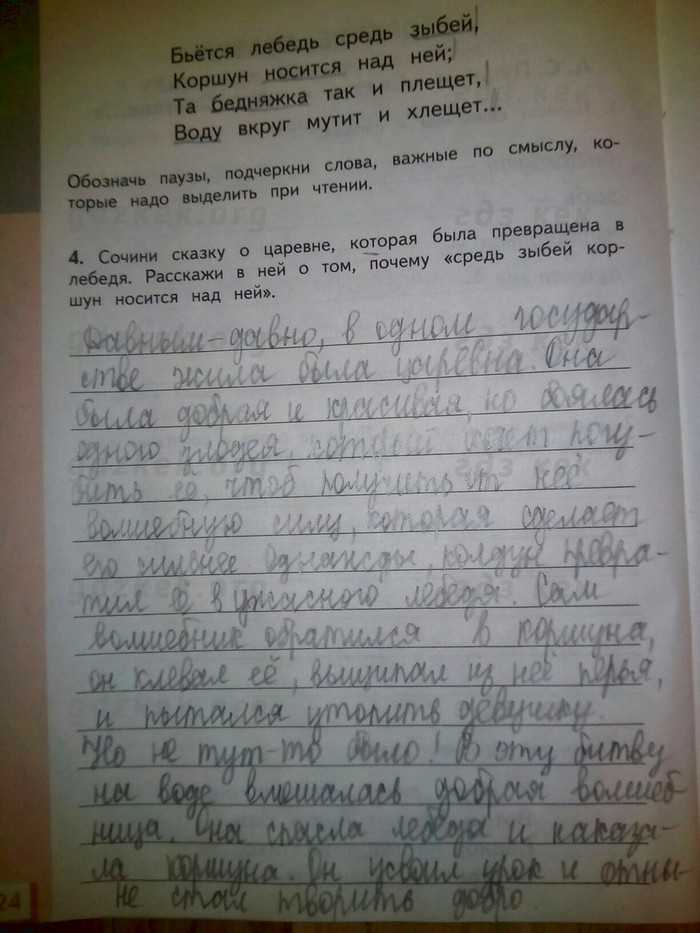 Бьётся лебедь средь зыбей,
Коршун носится над ней;
Та бедняжка так и плещет,
Воду вкруг мутит и хлещет...
Обозначь паузы, подчеркни слова, важные по смыслу, ко-
торые надо выделить при чтении.
4. Сочини сказку о царевне, которая была превращена в
лебедя. Расскажи в ней о том, почему «средь зыбей кор-
шун носится над ней».
Давным-давно, в одном государ-
стве жила была царевна. Она
была добрая и красивая, но боялась
одного злодея, который хочет погу-
бить её, чтоб получить от неё
волшебную силу, которая сделает
его сильнее. Однажды, колдун превра-
тил её в ужасного лебедя. Сам
волшебник обратился в коршуна,
он клевал её, выщипал из неё перья,
и пытался утопить девушку.
Но не тут-то было! В эту битву
на воде вмешалась добрая волшеб-
ница. Она спасла лебедя и наказа-
ла коршуна. Он усвоил урок и отны-
не стал творить добро.
24